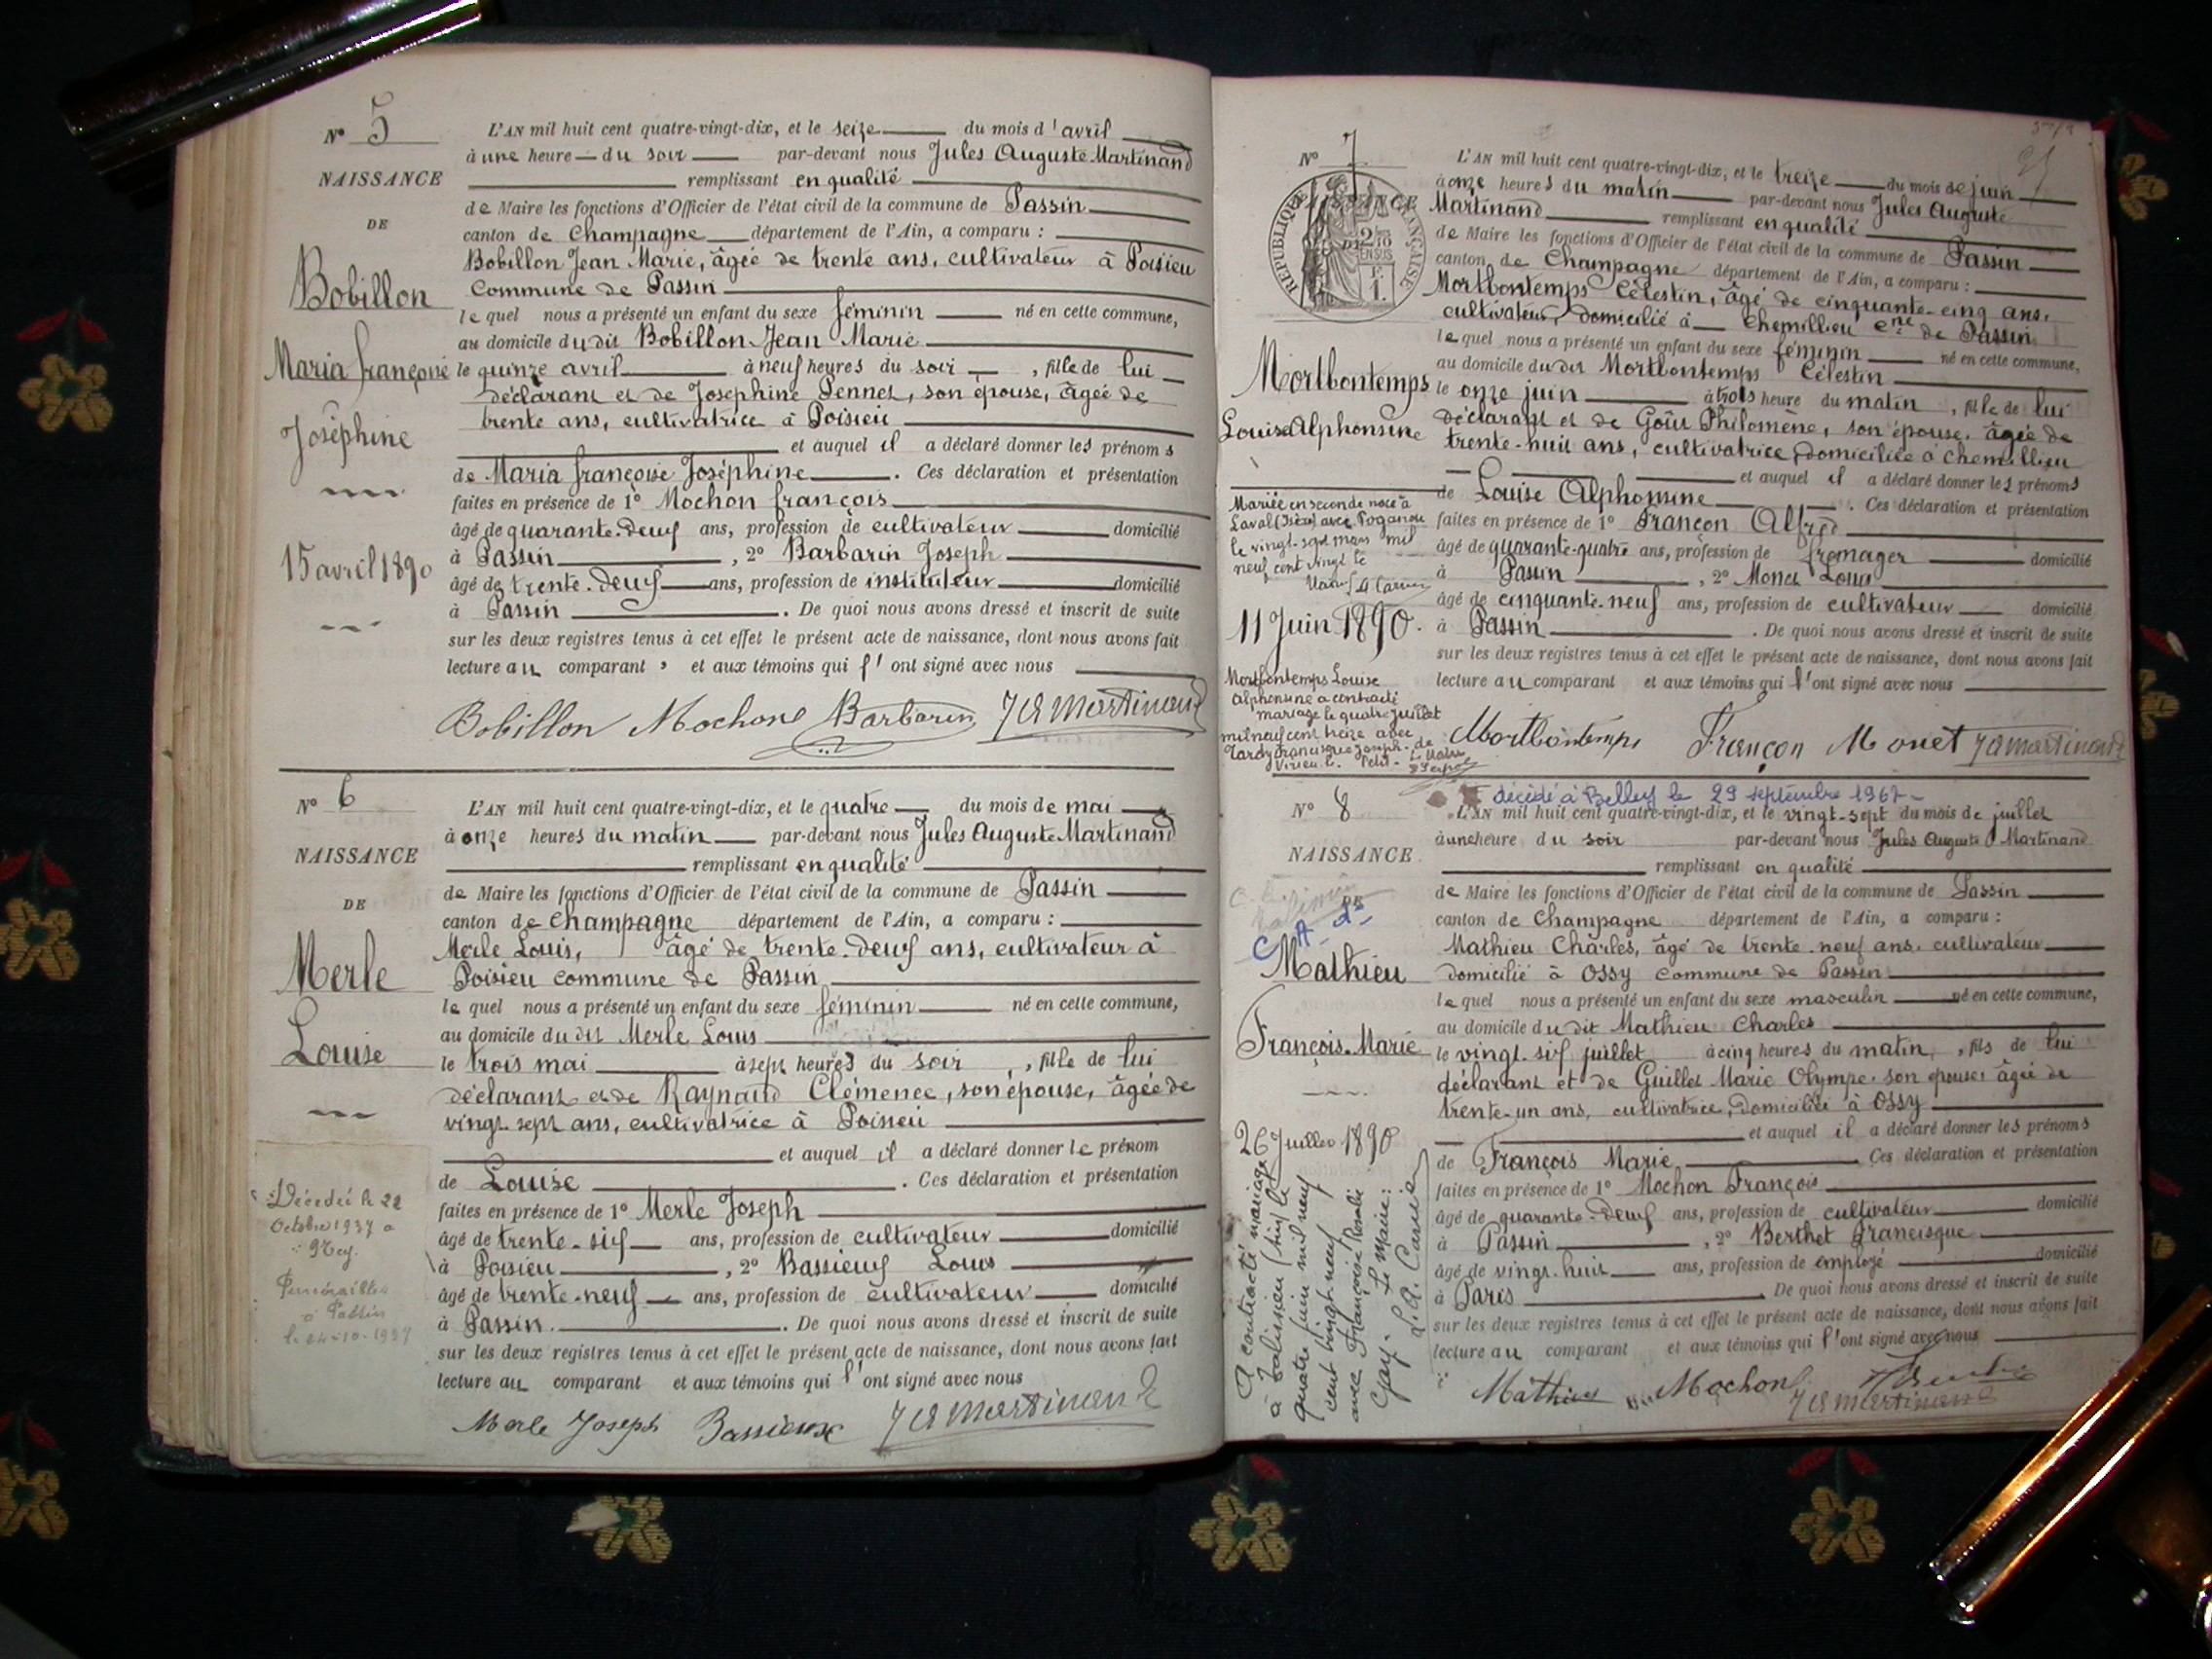 N° 5
NAISSANCE
DE
Bobillon
Maria françoise
Joséphine
15 avril 1890
L'AN mil huit cent quatre-vingt-dix, et le seize du mois d'avril
à une heure du soir par-devant nous Jules Auguste Martinand
remplissant en qualité
de Maire les fonctions d'Officier de l'état civil de la commune de Passin
canton de Champagne département de l'Ain, a comparu :
Bobillon Jean Marie, âgée de trente ans, cultivateur à Poisieu
commune de Passin
le quel nous a présenté un enfant du sexe féminin né en cette commune,
au domicile du dit Bobillon Jean Marie
le quinze avril à neuf heures du soir, fille de lui
déclarant et de Josephine Pennet, son épouse, âgée de
trente ans, cultivatrice à Poisieu
et auquel il a déclaré donner les prénoms
de Maria françoise Joséphine. Ces déclaration et présentation
faites en présence de 1° Mochon françois
âgé de quarante-deux ans, profession de cultivateur domicilié
à Passin, 2° Barbarin Joseph
âgé de trente-deux ans, profession de instituteur domicilié
à Passin. De quoi nous avons dressé et inscrit de suite
sur les deux registres tenus à cet effet le présent acte de naissance, dont nous avons fait
lecture au comparant, et aux témoins qui l'ont signé avec nous
Bobillon Mochon Barbarin J A Martinand
N° 6
NAISSANCE
DE
Merle
Louise
Décédée le 22
Octobre 1937 a
Funérailles
à Passin
le 24-10-1937
L'AN mil huit cent quatre-vingt-dix, et le quatre du mois de mai
à onze heures du matin par-devant nous Jules Auguste Martinand
remplissant en qualité
de Maire les fonctions d'Officier de l'état civil de la commune de Passin
canton de Champagne département de l'Ain, a comparu :
Merle Louis, âgé de trente-deux ans, cultivateur à
Poisieu commune de Passin
le quel nous a présenté un enfant du sexe féminin né en cette commune,
au domicile du dit Merle Louis
le trois mai à sept heures du soir, fille de lui
déclarant et de Raynaud Clémence, son épouse, âgée de
vingt sept ans, cultivatrice à Poisieu
et auquel il a déclaré donner le prénom
de Louise. Ces déclaration et présentation
faites en présence de 1° Merle Joseph
âgé de trente-six ans, profession de cultivateur domicilié
à Poisieu, 2° Bassieux Louis
âgé de trente-neuf ans, profession de cultivateur domicilié
à Passin. De quoi nous avons dressé et inscrit de suite
sur les deux registres tenus à cet effet le présent acte de naissance, dont nous avons fait
lecture au comparant et aux témoins qui l'ont signé avec nous
Merle Joseph Bassieux J A Martinand
N° 7
NAISSANCE
RÉPUBLIQUE FRANÇAISE
Mortbontemps
Louise Alphonsine
Mariée en seconde noce à
Laval (Isère) avec
le vingt-sept mars mil
neuf cent vingt
11 Juin 1890.
Mortbontemps Louise
Alphonsine a contracté
mariage le quatre juillet
mil neuf cent treize avec
Tardy Francisque Joseph de
Virieu le Petit
L'AN mil huit cent quatre-vingt-dix, et le treize du mois de juin
à onze heures du matin par-devant nous Jules Auguste
Martinand remplissant en qualité
de Maire les fonctions d'Officier de l'état civil de la commune de Passin
canton de Champagne département de l'Ain, a comparu :
Mortbontemps Célestin, âgé de cinquante-cinq ans,
cultivateur, domicilié à Chemillieu cne de Passin
le quel nous a présenté un enfant du sexe féminin né en cette commune,
au domicile du dit Mortbontemps Célestin
le onze juin à trois heure du matin, fille de lui
déclarant et de Goûr Philomène, son épouse, âgée de
trente-huit ans, cultivatrice domiciliée à Chemillieu
et auquel il a déclaré donner les prénoms
de Louise Alphonsine. Ces déclaration et présentation
faites en présence de 1° Françon Alfred
âgé de quarante-quatre ans, profession de fromager domicilié
à Passin, 2° Monet Louis
âgé de cinquante-neuf ans, profession de cultivateur domicilié
à Passin. De quoi nous avons dressé et inscrit de suite
sur les deux registres tenus à cet effet le présent acte de naissance, dont nous avons fait
lecture au comparant et aux témoins qui l'ont signé avec nous
Mortbontemps Françon Monet J A Martinand
N° 8
NAISSANCE
DE
Mathieu
François-Marie
26 Juillet 1890
A contracté mariage
quatre juin mil neuf
cent vingt-neuf
avec Françoise
Gay. Le Maire:
décédé à Belley le 29 septembre 1967
L'AN mil huit cent quatre-vingt-dix, et le vingt-sept du mois de juillet
à une heure du soir par-devant nous Jules Auguste Martinand
remplissant en qualité
de Maire les fonctions d'Officier de l'état civil de la commune de Passin
canton de Champagne département de l'Ain, a comparu :
Mathieu Charles, âgé de trente-neuf ans, cultivateur
domicilié à Ossy commune de Passin
le quel nous a présenté un enfant du sexe masculin né en cette commune,
au domicile du dit Mathieu Charles
le vingt-six juillet à cinq heures du matin, fils de lui
déclarant et de Guillet Marie Olympe, son épouse, âgée de
trente-un ans, cultivatrice, domiciliée à Ossy
et auquel il a déclaré donner les prénoms
de François Marie Ces déclaration et présentation
faites en présence de 1° Mochon François
âgé de quarante-deux ans, profession de cultivateur domicilié
à Passin, 2° Berthet Francisque
âgé de vingt-huit ans, profession de employé domicilié
à Paris De quoi nous avons dressé et inscrit de suite
sur les deux registres tenus à cet effet le présent acte de naissance, dont nous avons fait
lecture au comparant et aux témoins qui l'ont signé avec nous
Mathieu Mochon J A Martinand